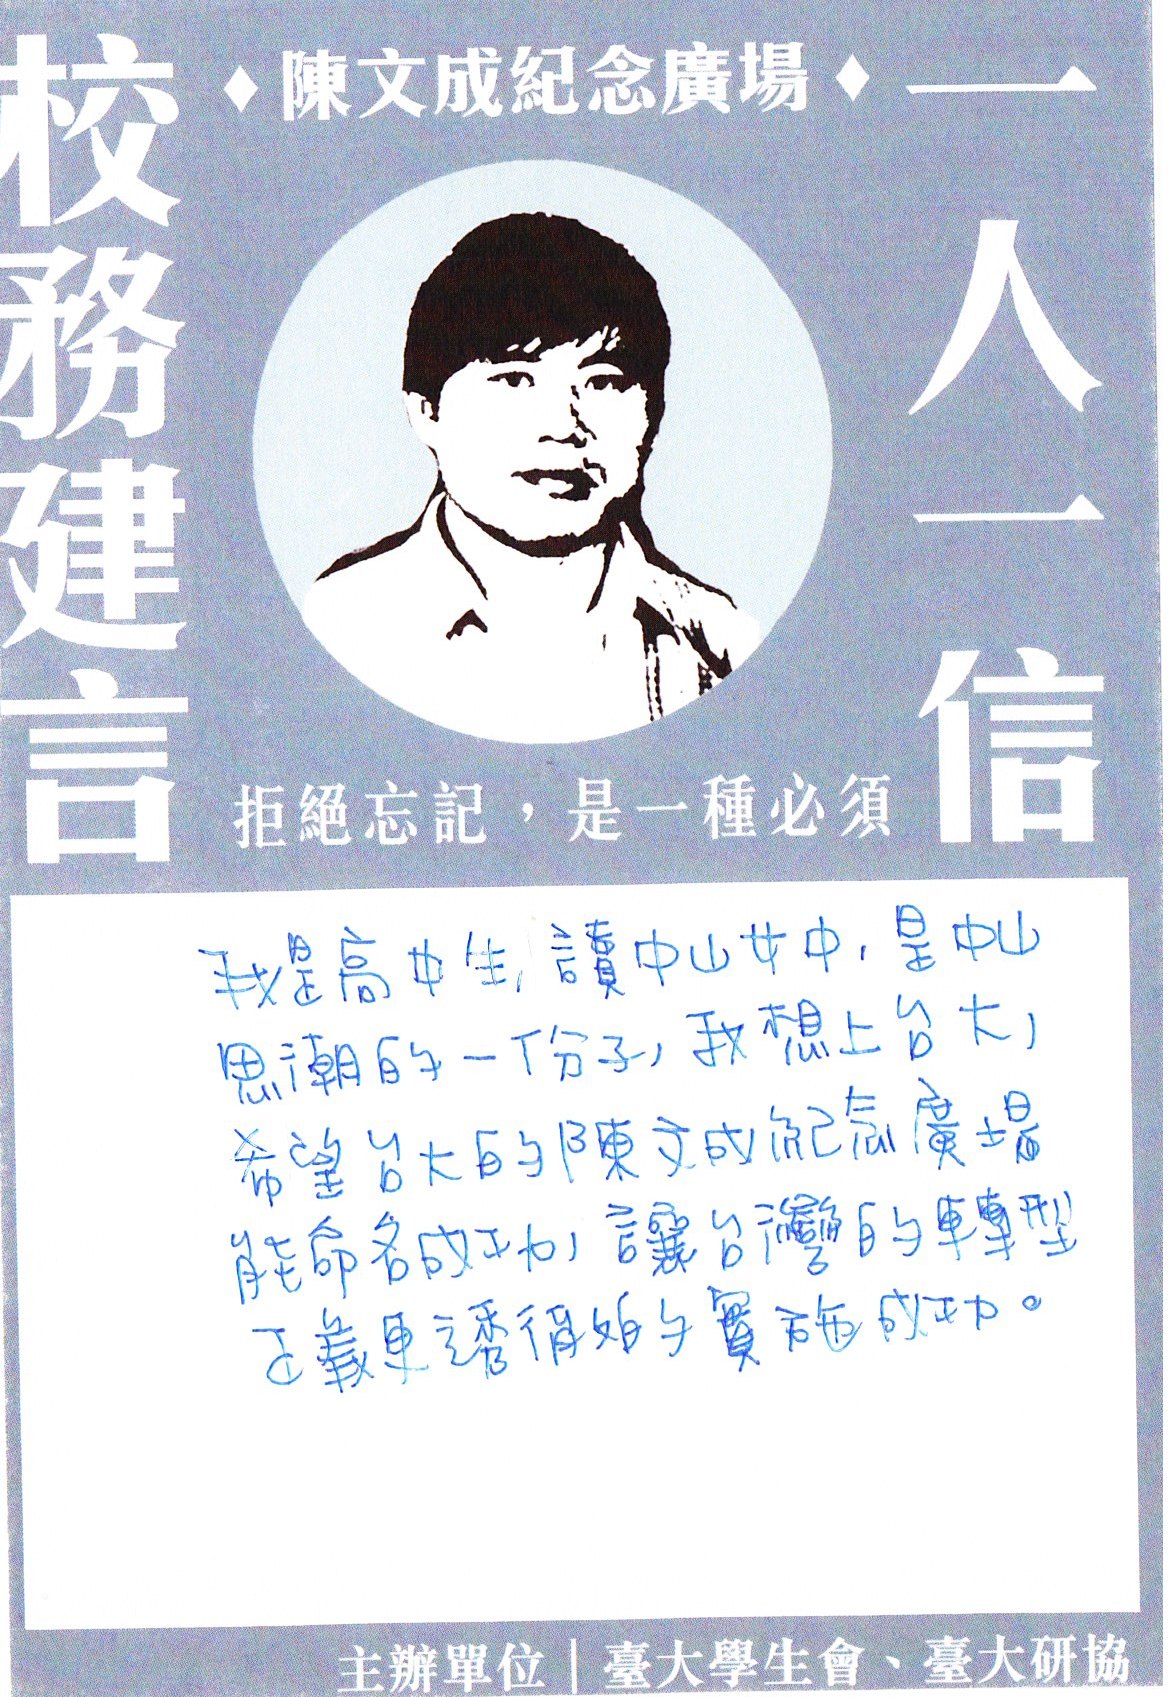 一人一信
校務建言
♦陳文成紀念廣場♦
拒絕忘記，是一種必須
我是高中生,讀中山女中,是中山
思潮的一份子,我想上台大,
希望台大的陳文成紀念廣場
能命名成功,讓台灣的轉型
正義更透徹始子實施成功。
主辦單位｜臺大學生會、臺大研協